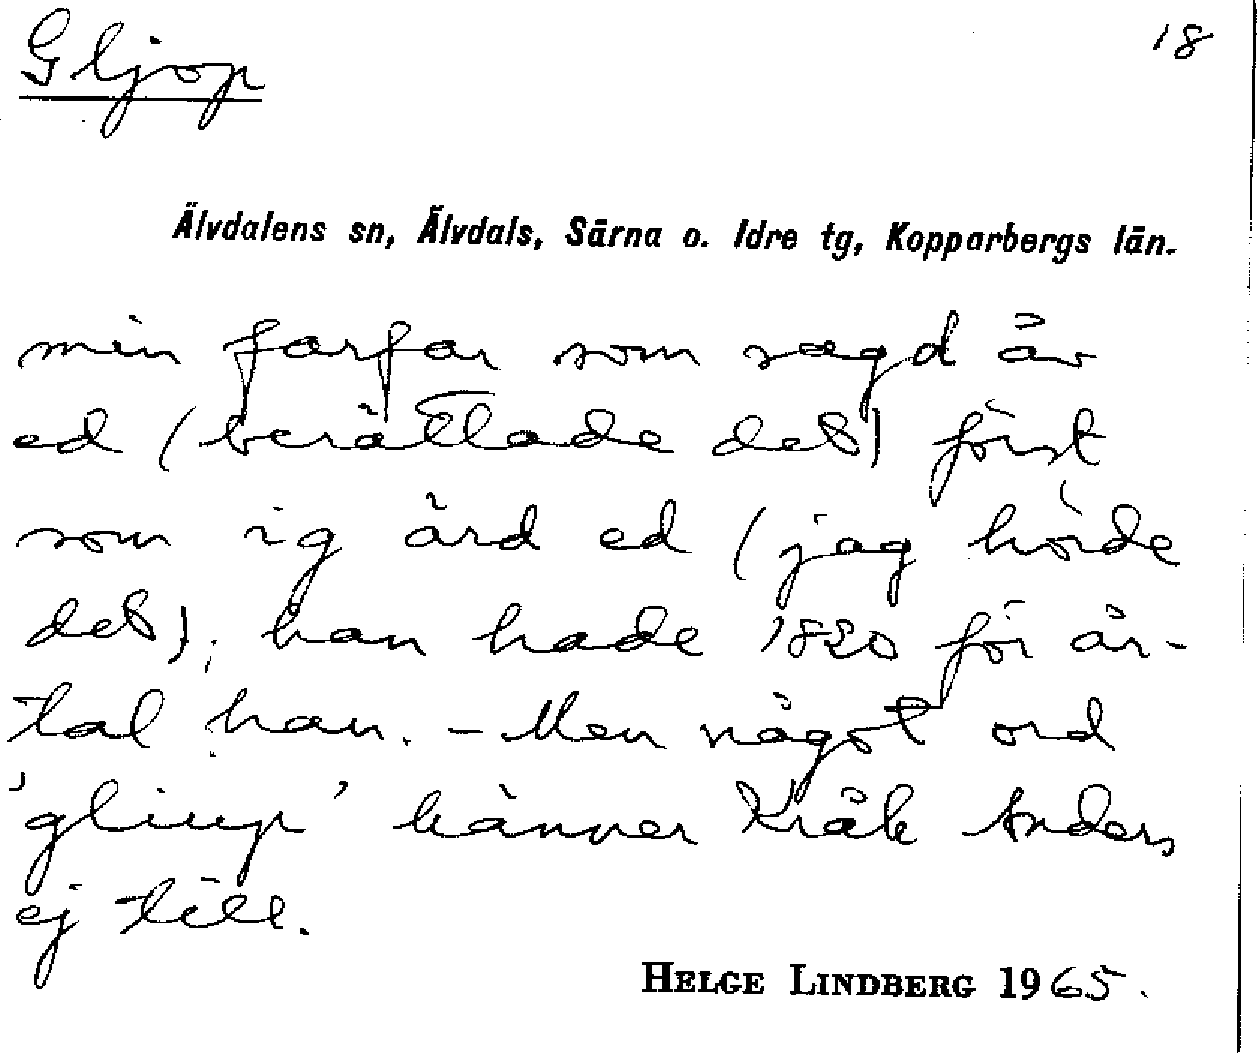 Gljop
18
Älvdalens sn, Älvdals, Särna o. Idre tg, Kopparbergs län.
min farfar som sagd åv
ed (berättade det) först
som ig ärd ed (jag hörde
det); han hade 1820 för år-
tal han. – Men något ord
'gliup' känner Kråk Anders
ej till.
HELGE LINDBERG 1965.